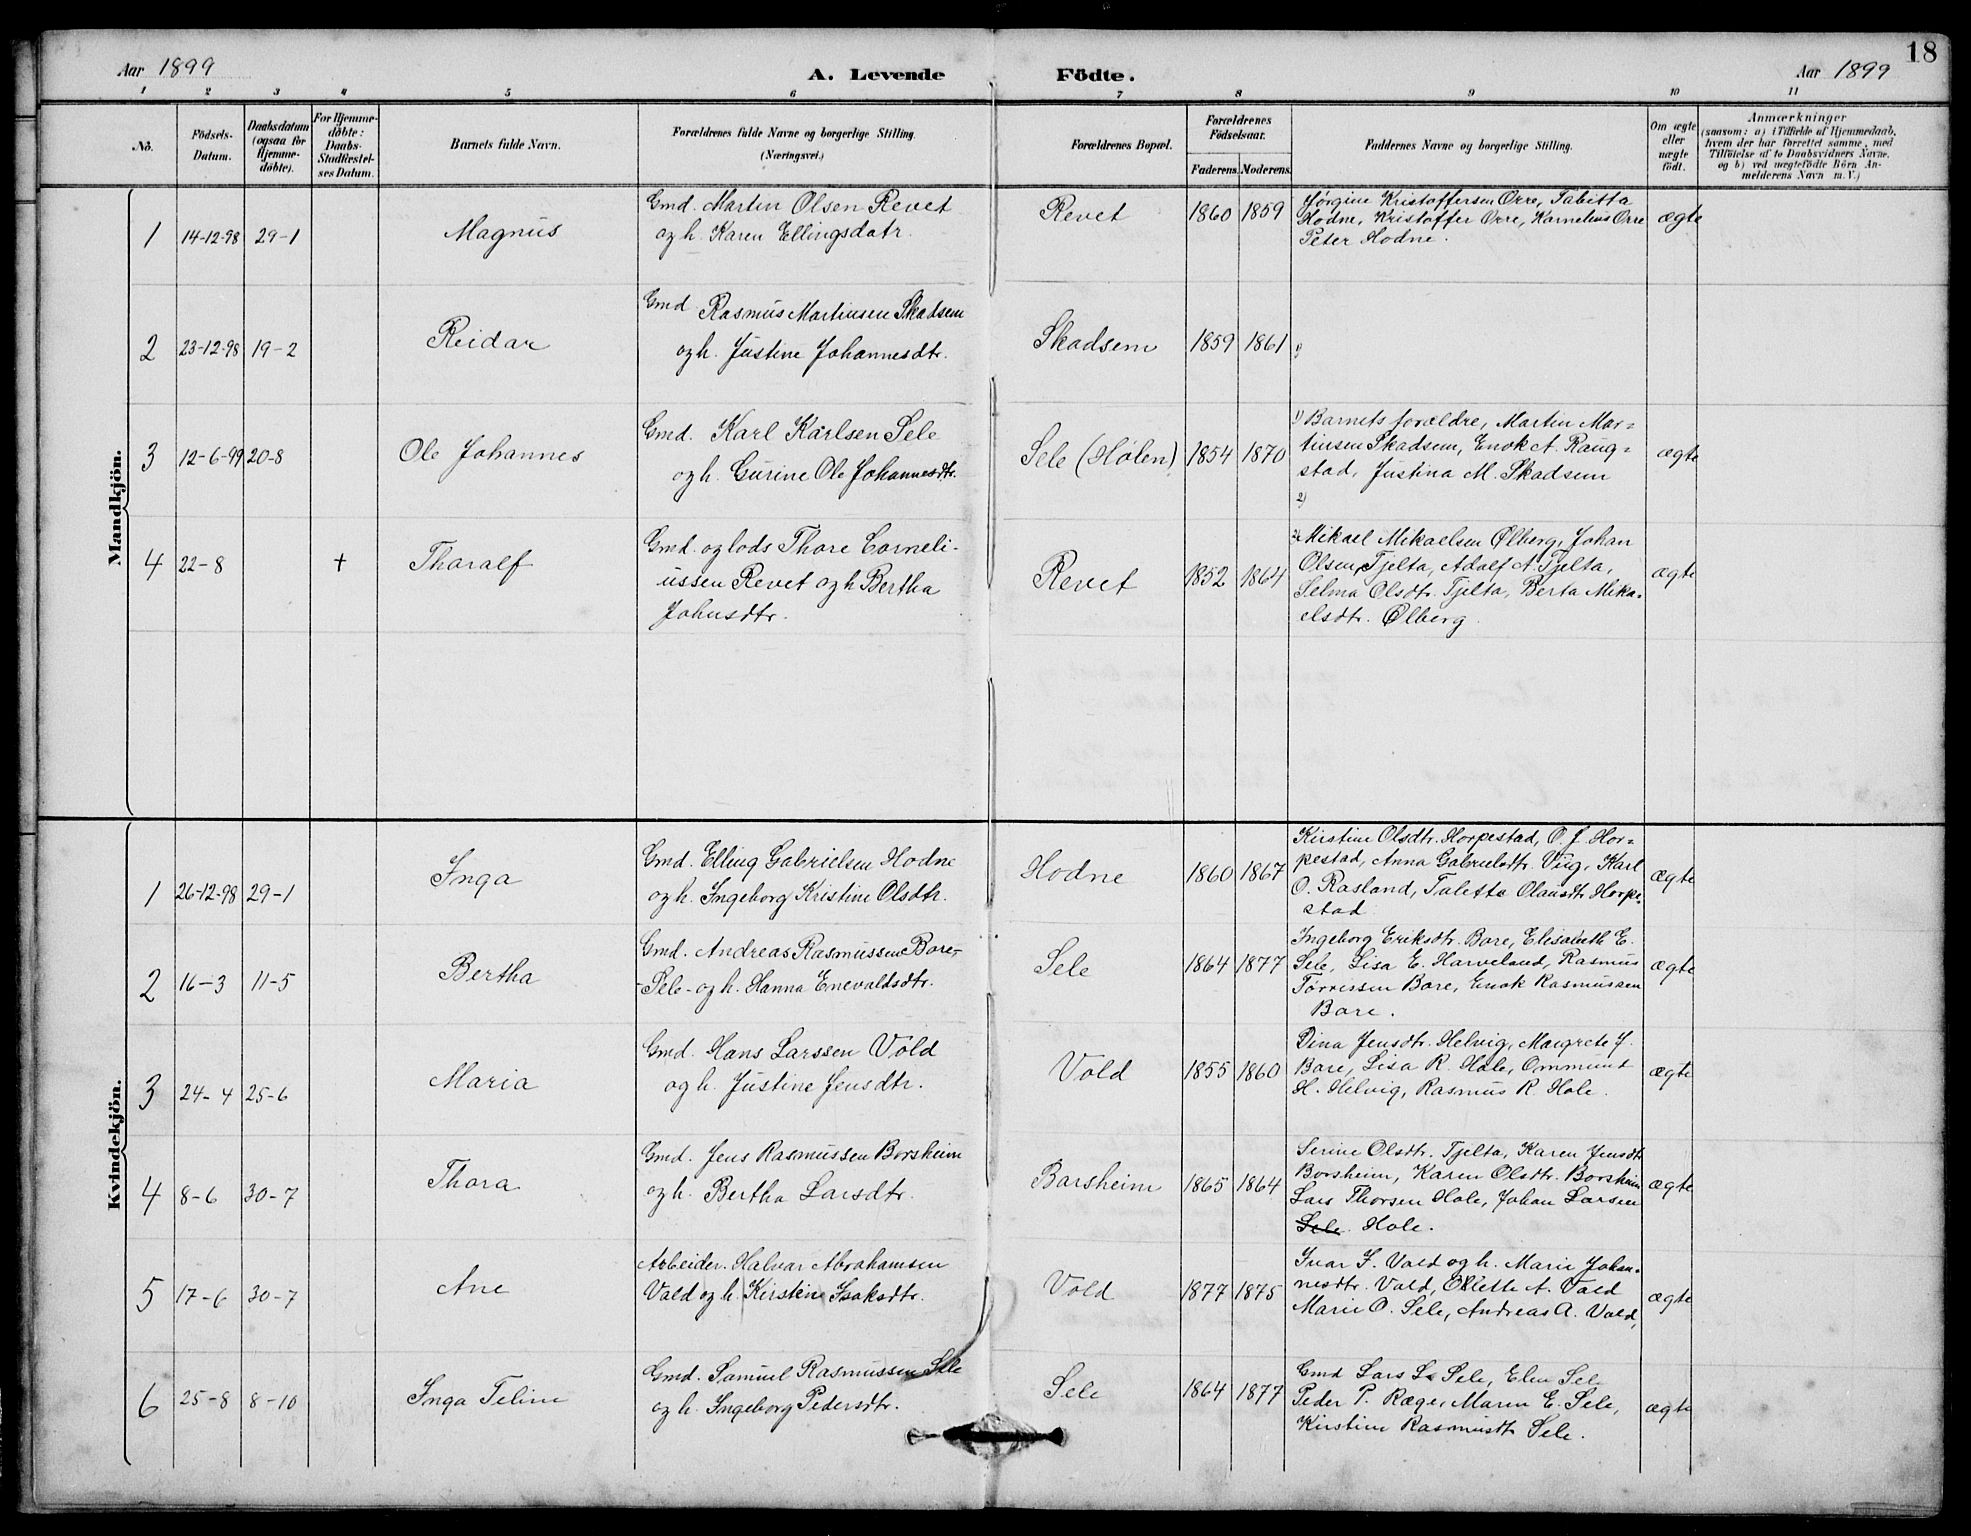 18
Aar 1899
A. Levende Födte.
Aar 1899
1 2 3 4 5 6 7 8 9 10 11
No.
Födsels-
Datum.
Daabsdatum
(ogsaa for
Hjemme-
døbte).
For Hjemme-
døbte:
Daabs-
Stadfæstel-
ses Datum.
Barnets fulde Navn.
Forældrenes fulde Navne og borgerlige Stilling.
(Næringsvei.)
Forældrenes Bopæl.
Forældrenes
Födselsaar.
Faderens. Moderens.
Faddernes Navne og borgerlige Stilling.
Om ægte
eller
uægte
født.
Anmærkninger
(saasom: a) i Tilfælde af Hjemmedaab,
hvem der har forrettet samme, med
Tilføielse af to Daabsvidners Navne,
og b) ved uægtefödte Börn An-
melderens Navn m. V.)
Mandkjön.
1 14-12-98 29-1 Magnus
Gmd. Martin Olsen Revet
og h. Karen Ellingsdatr.
Revet 1860 1859
Jørgine Kristoffersen Orre, Tabitta
Hodne, Kristoffer Orre, Kornelius Orre
Peter Hodne.
ægte
2 23-12-98 19-2 Reidar
Gmd Rasmus Martinsen Skadsem
og h. Justine Johannesdtr.
Skadsem 1859 1861 1)
3 12-6-99 20-8 Ole Johannes
Gmd. Karl Karlsen Sele
og h. Gurine Ole Johannesdtr.
Sele (Hølen) 1854 1870
1) Barnets forældre, Martin Mar=
tinsen Skadsem, Enok A. Raug=
stad, Justina M. Skadsem
2)
ægte
4 22-8 + Tharalf
Gmd. og lods Thore Corneli-
ussen Revet og h Bertha
Johnsdtr.
Revet 1852 1864
2) Mikael Mikaelsen Ølberg, Johan
Olsen Tjelta, Adolf A. Tjelta,
Selma Olsdtr. Tjelta, Berta Mika=
elsdtr. Ølberg
ægte
Kvindekjön.
1 26-12-98 29-1 Inga
Gmd. Elling Gabrielsen Hodne
og h. Ingeborg Kristine Olsdtr.
Hodne 1860 1867
Kirstine Olsdtr. Horpestad, O. J Hor=
pestad, Anna Gabrielsdtr Viig, Karl
O. Rasland, Taletta Olausdtr Horpe=
stad
ægte
2 16-3 11-5 Bertha
Gmd. Andreas Rasmussen Bore-
-Sele- og h. Hanna Enevaldsdtr.
Sele 1864 1877
Ingeborg Eriksdtr. Bore, Elisabeth E.
Sele, Lisa E. Harveland, Rasmus
Torressen Bore, Enok Rasmussen
Bore.
ægte
3 24-4 25-6 Maria
Gmd. Hans Larssen Vold
og h. Justine Jensdtr.
Vold 1855 1860
Dina Jensdtr. Helvig, Margrete J.
Bore, Lisa R. Hole, Ommund
H. Helvig, Rasmus R. Hole.
ægte
4 8-6 30-7 Thora
Gmd. Jens Rasmussen Borsheim
og h. Bertha Larsdtr.
Borsheim 1865 1864
Serine Olsdtr. Tjelta, Karen Jensdtr.
Borsheim, Karen Olsdtr. Borsheim
Lars Thorsen Hole, Johan Larsen
Sele Hole.
ægte
5 17-6 30-7 Ane
Arbeider. Halvar Abrahamsen
Vald og h. Kirstine Isaksdtr.
Vold 1877 1875
Ivar I. Vold og h. Marie Johan=
nesdtr. Vold, Ollette A. Vald
Marie O. Sele, Andreas A. Vold,
ægte
6 25-8 8-10 Inga Teline
Gmd. Samuel Rasmussen Sele
og h. Ingeborg Pedersdtr.
Sele 1864 1877
Gmd Lars L. Sele, Elen Sele
Peder P. Ræge, Maren E. Sele,
Kirstine Rasmusdtr Sele.
ægte